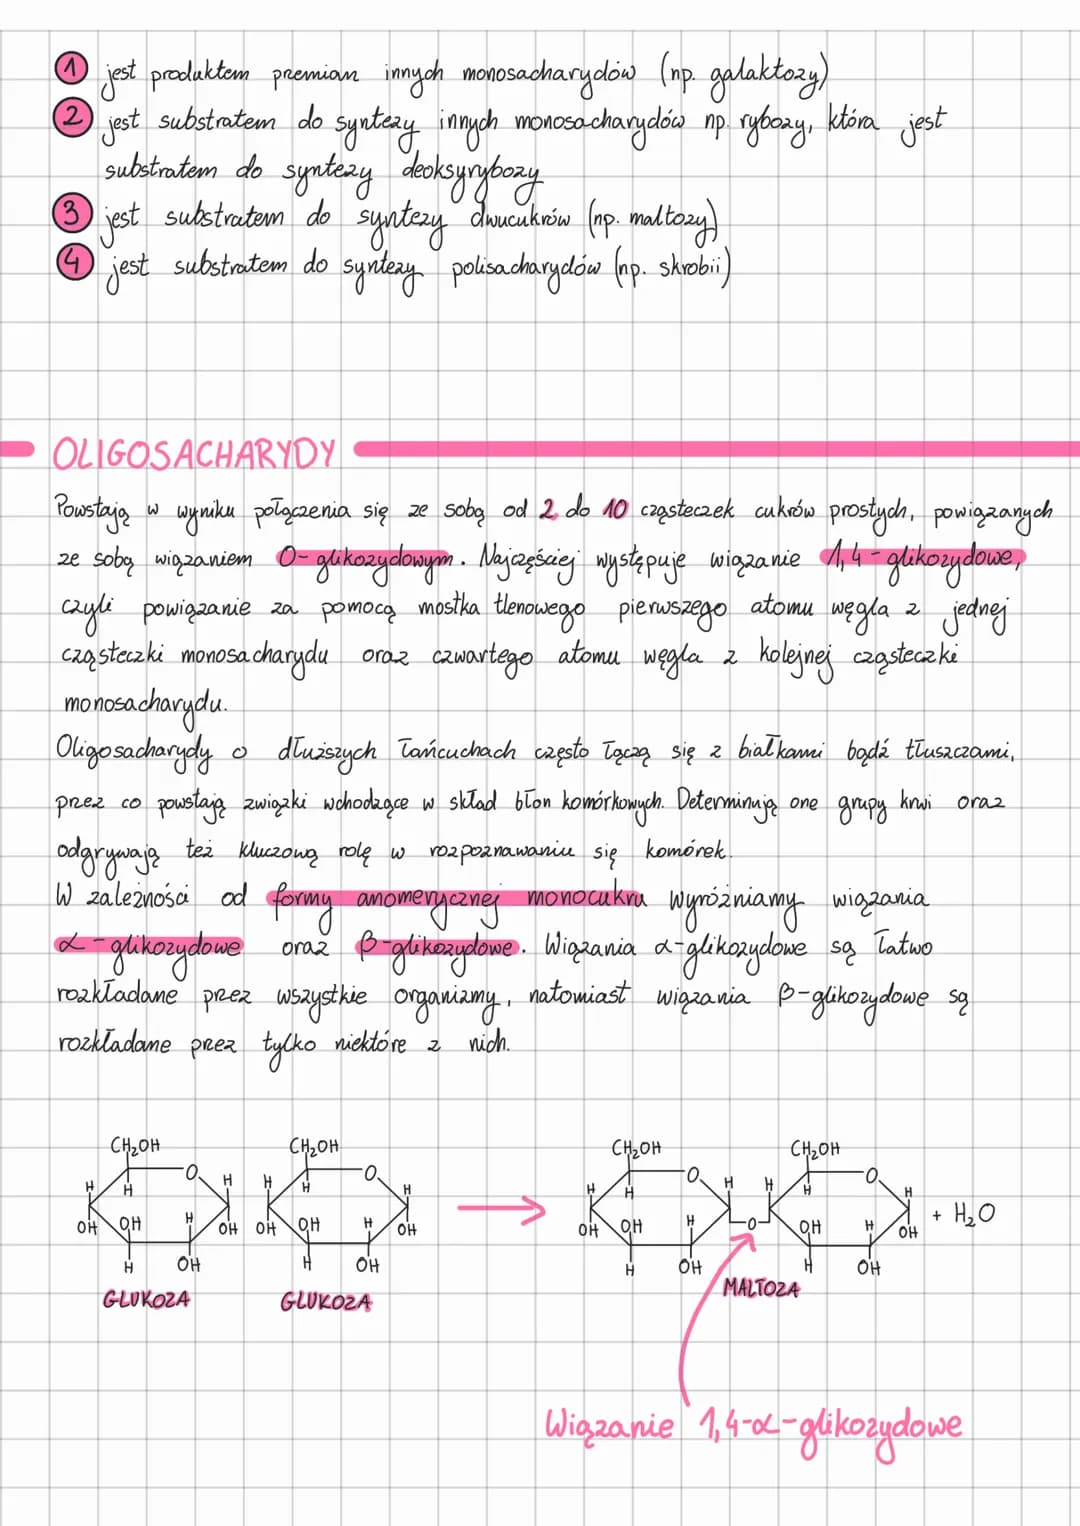 1 jest produktem przemian innych monosacharydów (np. galaktozy)
2 jest substratem do syntezy innych monosacharydów np. rybozy, która jest
substratem do syntezy deoksyrybozy
3 jest substratem do syntezy dwucukrów (np. maltozy)
4 jest substratem do syntezy polisacharydów (np. skrobii)
OLIGOSACHARYDY
Powstają w wyniku połączenia się ze sobą od 2 do 10 cząsteczek cukrów prostych, powiązanych
ze sobą wiązaniem O-glikozydowym. Najczęściej występuje wiązanie 1,4-glikozydowe,
czyli powiązanie za pomocą mostka tlenowego pierwszego atomu węgla z jednej
cząsteczki monosacharydu oraz czwartego atomu węgla z kolejnej cząsteczki
monosacharydu.
Oligosacharydy o dłuższych łańcuchach często łączą się z białkami bądź tłuszczami,
przez co powstają związki wchodzące w skład błon komórkowych. Determinują one grupy krwi oraz
odgrywają też kluczową rolę w rozpoznawaniu się komórek.
W zależności od formy anomerycznej monocukru wyróżniamy wiązania
α-glikozydowe oraz β-glikozydowe. Wiązania α-glikozydowe są łatwo
rozkładane przez wszystkie organizmy, natomiast wiązania β-glikozydowe są
rozkładane przez tylko niektóre z nich.
CH₂OH CH₂OH CH₂OH CH₂OH
O O O O
H H H H H H H H H H
OH OH H OH OH OH H OH OH OH H O OH H OH + H₂O
H OH H OH H OH H OH
GLUKOZA GLUKOZA MALTOZA
Wiązanie 1,4-α-glikozydowe